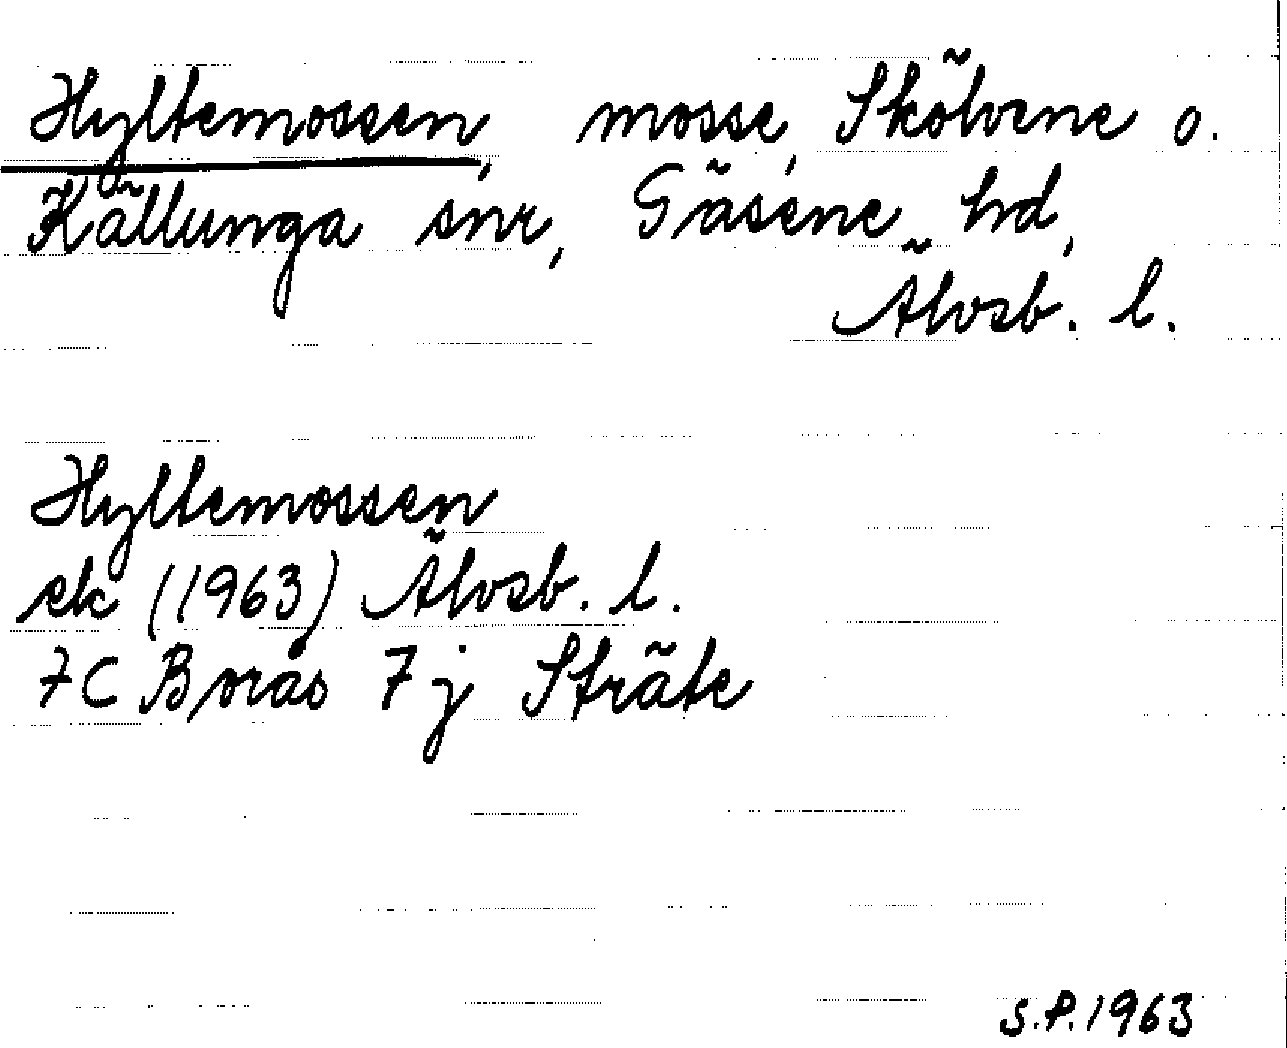 Hyltemossen, mosse, Skölvene o.
Källunga snr, Gäsene hd,
Älvsb. l.
Hyltemossen
ek (1963) Älvsb. l.
7C Borås 7j Sträte
S.P. 1963